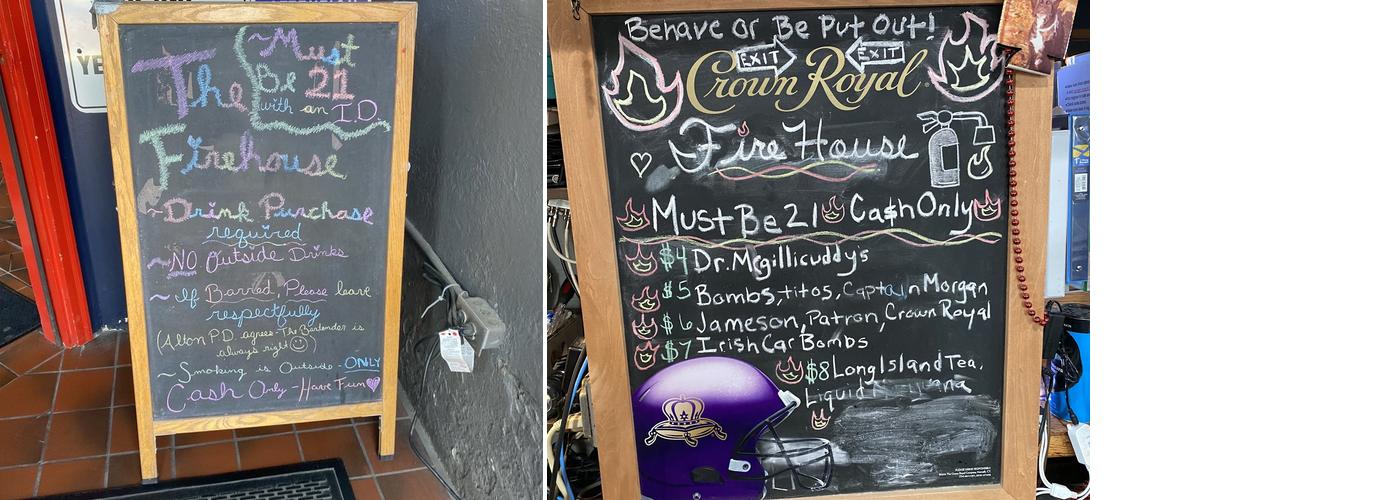 The
~Must
Be 21
with an I.D.
Firehouse
~Drink Purchase
required
~NO Outside Drinks
~ If Barred, Please leave
respectfully
(Alton P.D. agrees - The Bartender is
always right ☺)
~Smoking is Outside - ONLY
Cash Only - Have Fun ♡
Behave or Be Put Out!
EXIT EXIT
Crown Royal
Fire House
Must Be 21 Ca$h Only
$4 Dr. Mcgillicuddy's
$5 Bombs, titos, Captain Morgan
$6 Jameson, Patron, Crown Royal
$7 Irish Car Bombs
$8 Long Island Tea,
Liquid